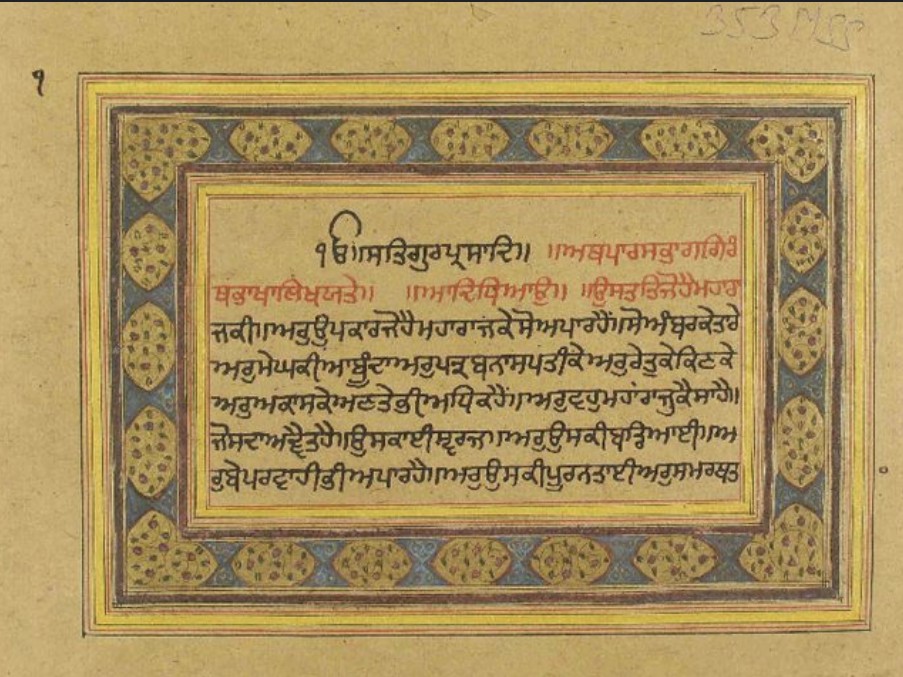 353 MSS
੧
ੴ॥ਸਤਿਗੁਰਪ੍ਰਸਾਦਿ॥ ॥ਅਥਪਾਰਸਭਾਗਗਿਰੰ
ਥਭਾਖਾਲਿਖਯਤੇ॥ ॥ਆਦਿਧਿਆਉ॥ ॥ਉਸਤੁਤਿਜੋਹੈਮਹਾਰਾ
ਜਕੀ॥ਅਰੁਉਪਕਾਰਜੋਹੈਮਹਾਰਾਜਕੇਸੋਅਪਾਰਹੈਂ॥ਸੋਅੰਬਰਕੇਤਾਰੇ
ਅਰੁਮੇਘਕੀਆਬੂੰਦਾਅਰੁਪਤ੍ਰਬਨਾਸਪਤੀਕੇਅਰੁਰੇਤੁਕੇਕਿਣਕੇ
ਅਰੁਅਕਾਸਕੇਅਣਤੇਭੀਅਧਿਕਹੈਂ॥ਅਰੁਵਹੁਮਹਾਂਰਾਜੁਕੈਸਾਹੈ॥
ਜੋਸਦਾਅਦ੍ਵੈਤਹੈ॥ਉਸਕਾਈਸ੍ਵਰਜ॥ਅਰੁਉਸਕੀਬਡਿਆਈ॥ਅ
ਰੁਬੇਪਰਵਾਹੀਭੀਅਪਾਰਹੈ॥ਅਰੁਉਸਕੀਪੂਰਨਤਾਈਅਰੁਸਮਰਥਤ